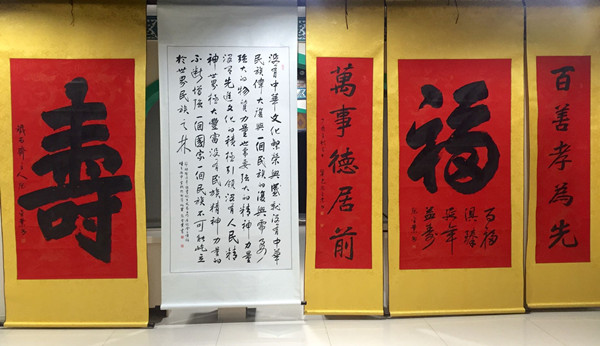 壽
没有中華文化繁荣興盛就没有中華
民族偉大復興一個民族的復興需要
强大的物質力量也需要强大的精神力量
没有先進文化的積極引領没有人民精
神世界極大豐富没有民族精神力量的
不断增强一個國家一個民族不可能屹立
於世界民族之林
萬事德居前
福
百福
俱臻
延年
益壽
百善孝為先